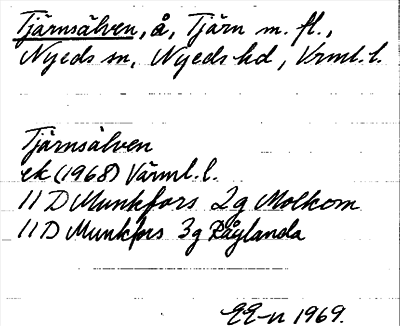 Tjärnsälven, å, Tjärn m. fl.,
Nyeds sn, Nyeds hd, Vrml. l.
Tjärnsälven
ek (1968) Värml. l.
11 D Munkfors 2g Molkom
11 D Munkfors 3g Råglanda
EE-n 1969.